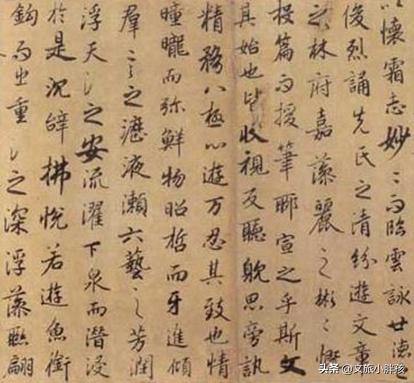 以懷霜志妙〻而臨雲詠世德
俊烈誦先氏之清紛遊文章
之林府嘉藻麗之彬〻慨
投篇而援筆聊宣之乎斯文
其始也皆收視反聽耽思旁訊
精務八極心遊万忍其致也情
瞳曨而弥鮮物昭晢而互進傾
群言之瀝液漱六藝之芳潤
浮天淵之安流濯下泉而潛浸
於是沉辭怫悅若遊魚銜
鈎而出重淵之深浮藻聯翩
头条 @文旅小胖孩